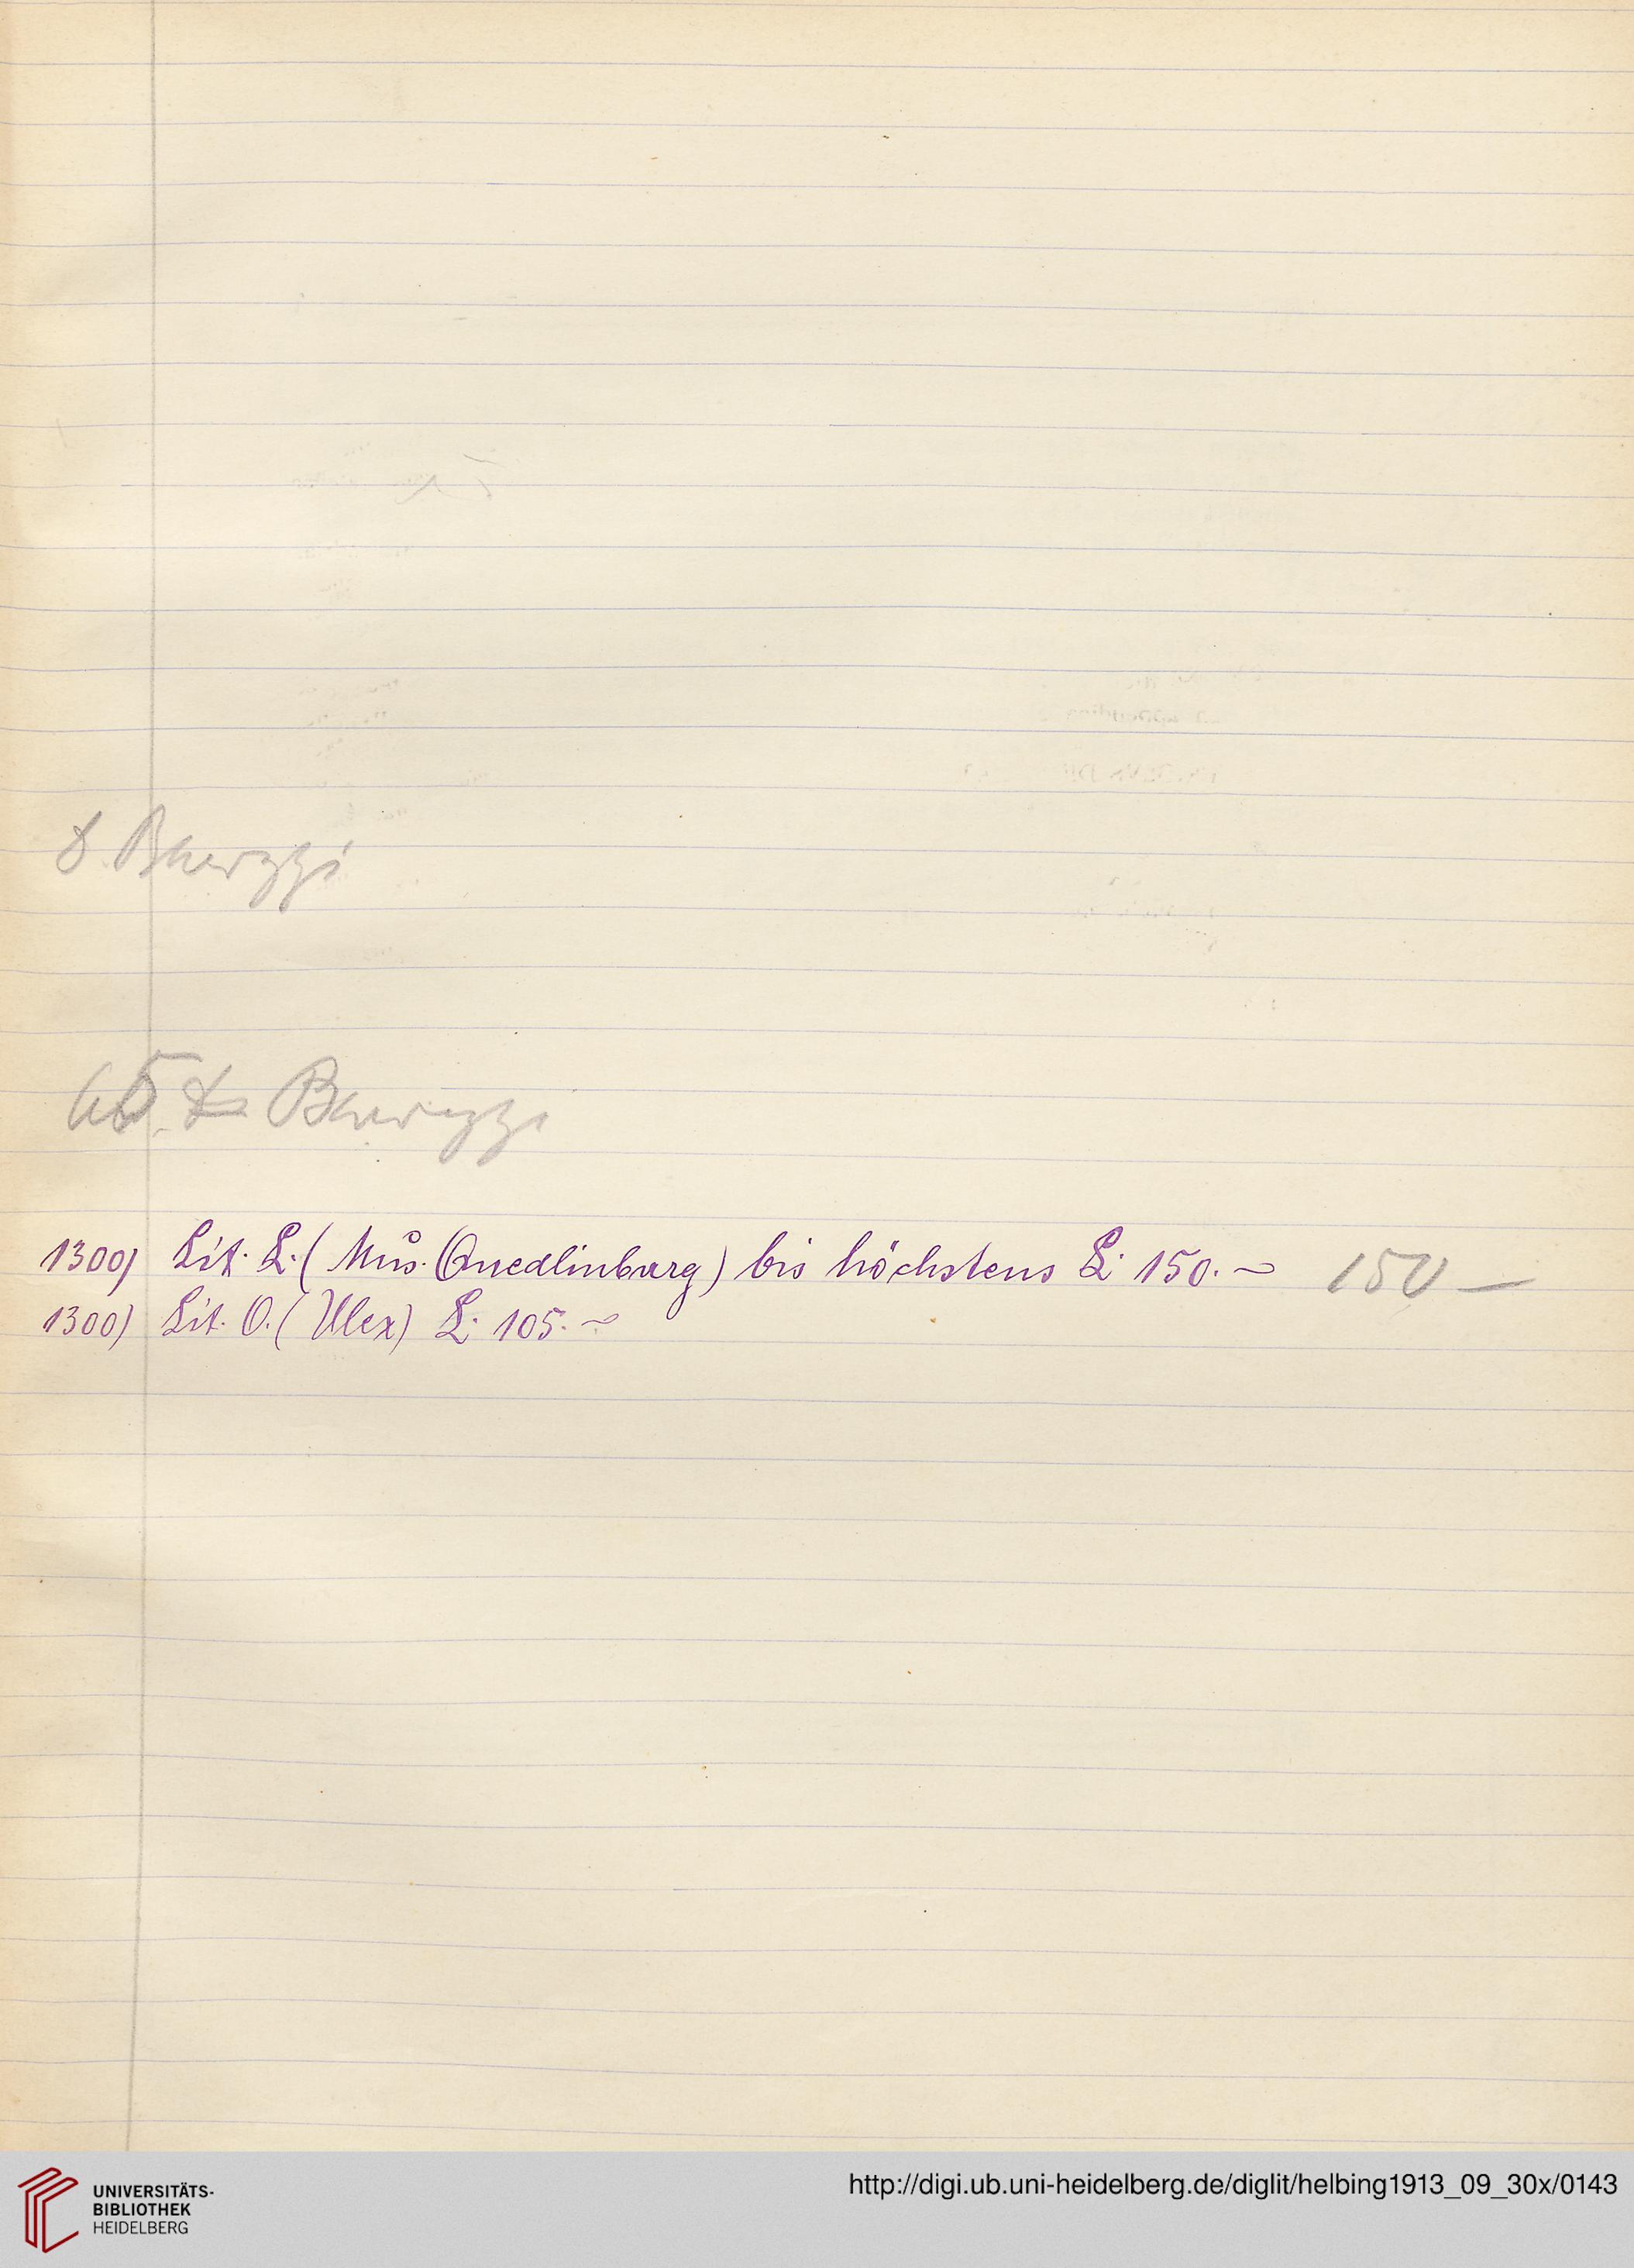 1300) Lit. L. ( Mus. Quedlinburg) bis höchstens L. 150. – 150 –
1300) Lit. O. ( Ulex) L. 105. –
UNIVERSITÄTS-
BIBLIOTHEK
HEIDELBERG
http://digi.ub.uni-heidelberg.de/diglit/helbing1913_09_30x/0143